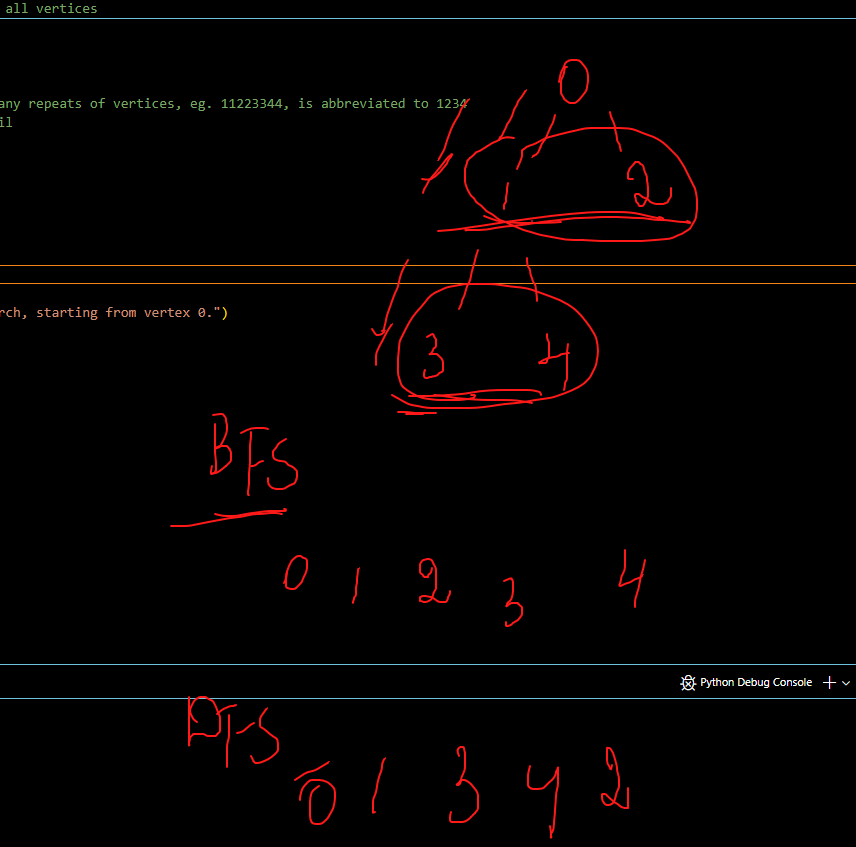 all vertices
0
any repeats of vertices, eg. 11223344, is abbreviated to 1234
il
1 2
rch, starting from vertex 0.")
3 4
BFS
0 1 2 3 4
Python Debug Console
DFS
0 1 3 4 2